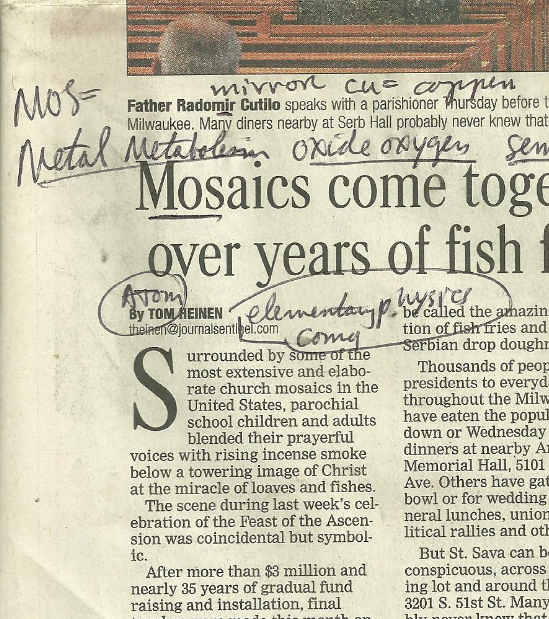 MOS= mirror cu= copper
Father Radomir Cutilo speaks with a parishioner Thursday before t
Milwaukee. Many diners nearby at Serb Hall probably never knew that
Metal Metabolism oxide oxygen sem
Mosaics come toge
over years of fish f
Atom
elementary physics
By TOM HEINEN
theinen@journalsentinel.com
Surrounded by some of the
most extensive and elabo-
rate church mosaics in the
United States, parochial
school children and adults
blended their prayerful
voices with rising incense smoke
below a towering image of Christ
at the miracle of loaves and fishes.
The scene during last week's cel-
ebration of the Feast of the Ascen-
sion was coincidental but symbol-
ic.
After more than $3 million and
nearly 35 years of gradual fund
raising and installation, final
be called the amazin
tion of fish fries and
Serbian drop doughn
Thousands of peop
presidents to everyd
throughout the Milw
have eaten the popul
down or Wednesday
dinners at nearby A
Memorial Hall, 5101
Ave. Others have gat
bowl or for wedding
neral lunches, union
litical rallies and oth
But St. Sava can b
conspicuous, across
ing lot and around th
3201 S. 51st St. Many
bly never knew that